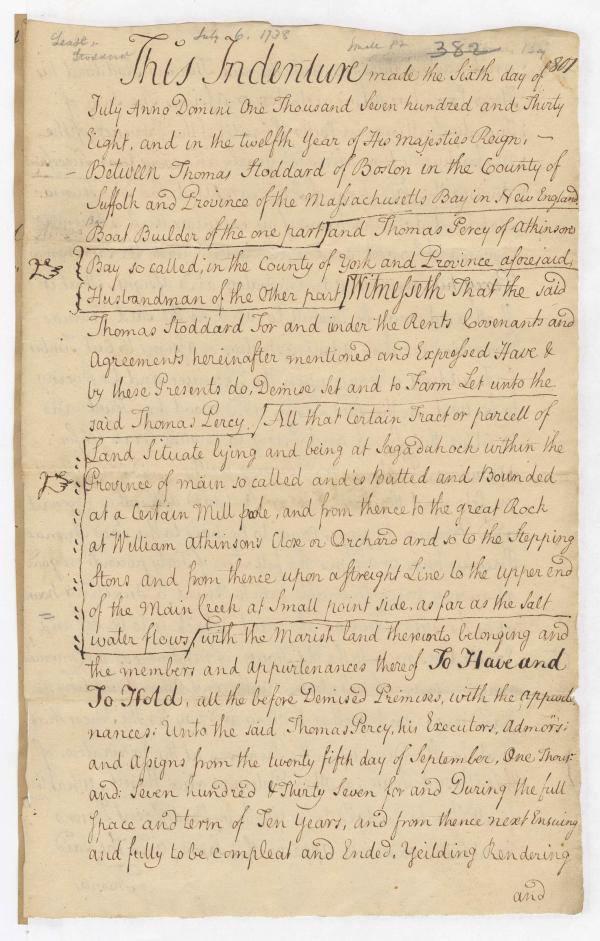 Lease,
Stoddard
July 6. 1738
Small Pt
382
801
This Indenture made the Sixth day of
July Anno Domini One Thousand Seven hundred and Thirty
Eight, and in the twelfth Year of His Majesties Reign, —
Between Thomas Stoddard of Boston in the County of
Suffolk and Province of the Massachusetts Bay in New England
Boat Builder of the one part and Thomas Percy of Atkinsons
Bay so called, in the County of York and Province aforesaid,
Husbandman of the Other part Witnesseth That the said
Thomas Stoddard For and under the Rents Covenants and
Agreements hereinafter mentioned and Expressed Have &
by these Presents do, Demise Set and to Farm Let unto the
said Thomas Percy. All that Certain Tract or parcell of
Land Situate lying and being at Sagadahock within the
Province of main so called and is Butted and Bounded
at a Certain Mill pole, and from thence to the great Rock
at William Atkinson's Close or Orchard and so to the Stepping
Stons and from thence upon a streight Line to the upper end
of the Main Creek at Small point side, as far as the Salt
water flows, with the Marish land thereunto belonging and
the members and appurtenances thereof To Have and
To Hold, all the before Demised Primises, with the appurte
nances; Unto the said Thomas Percy, his Executors, Admors;
and Assigns from the twenty fifth day of September, One Thous-
and: Seven hundred & Thirty Seven for and During the full
Space and term of Ten Years, and from thence next Ensuing
and fully to be compleat and Ended, Yeilding Rendering
and